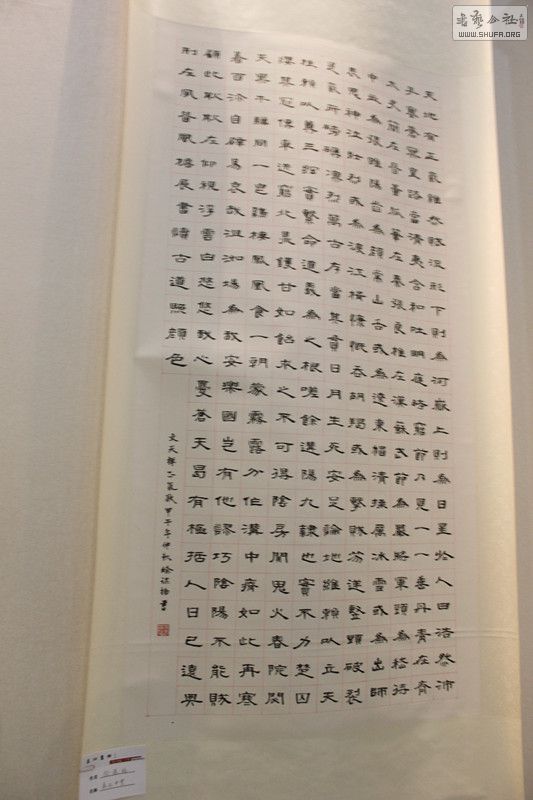 天地有正氣雜然賦流形下則為河嶽上則為日星於人曰浩然沛
乎塞蒼冥皇路當清夷含和吐明庭時窮節乃見一一垂丹青在齊
太史簡在晉董狐筆在秦張良椎在漢蘇武節為嚴將軍頭為嵇侍
中血為張睢陽齒為顏常山舌或為遼東帽清操厲冰雪或為出師
表鬼神泣壯烈或為渡江楫慷慨吞胡羯或為擊賊笏逆豎頭破裂
是氣所磅礴凜烈萬古存當其貫日月生死安足論地維賴以立天
柱賴以尊三綱實繫命道義為之根嗟餘遘陽九隸也實不力楚囚
纓其冠傳車送窮北鼎鑊甘如飴求之不可得陰房闃鬼火春院閟
天黑牛驥同一皂雞棲鳳凰食一朝蒙霧露分作溝中瘠如此再寒
暑百沴自辟易哀哉沮洳場為我安樂國豈有他謬巧陰陽不能賊
顧此耿耿在仰視浮雲白悠悠我心憂蒼天曷有極哲人日已遠典
刑在夙昔風檐展書讀古道照顏色
文天祥正氣歌甲午年仲秋書
書藝公社
WWW.SHUFA.ORG